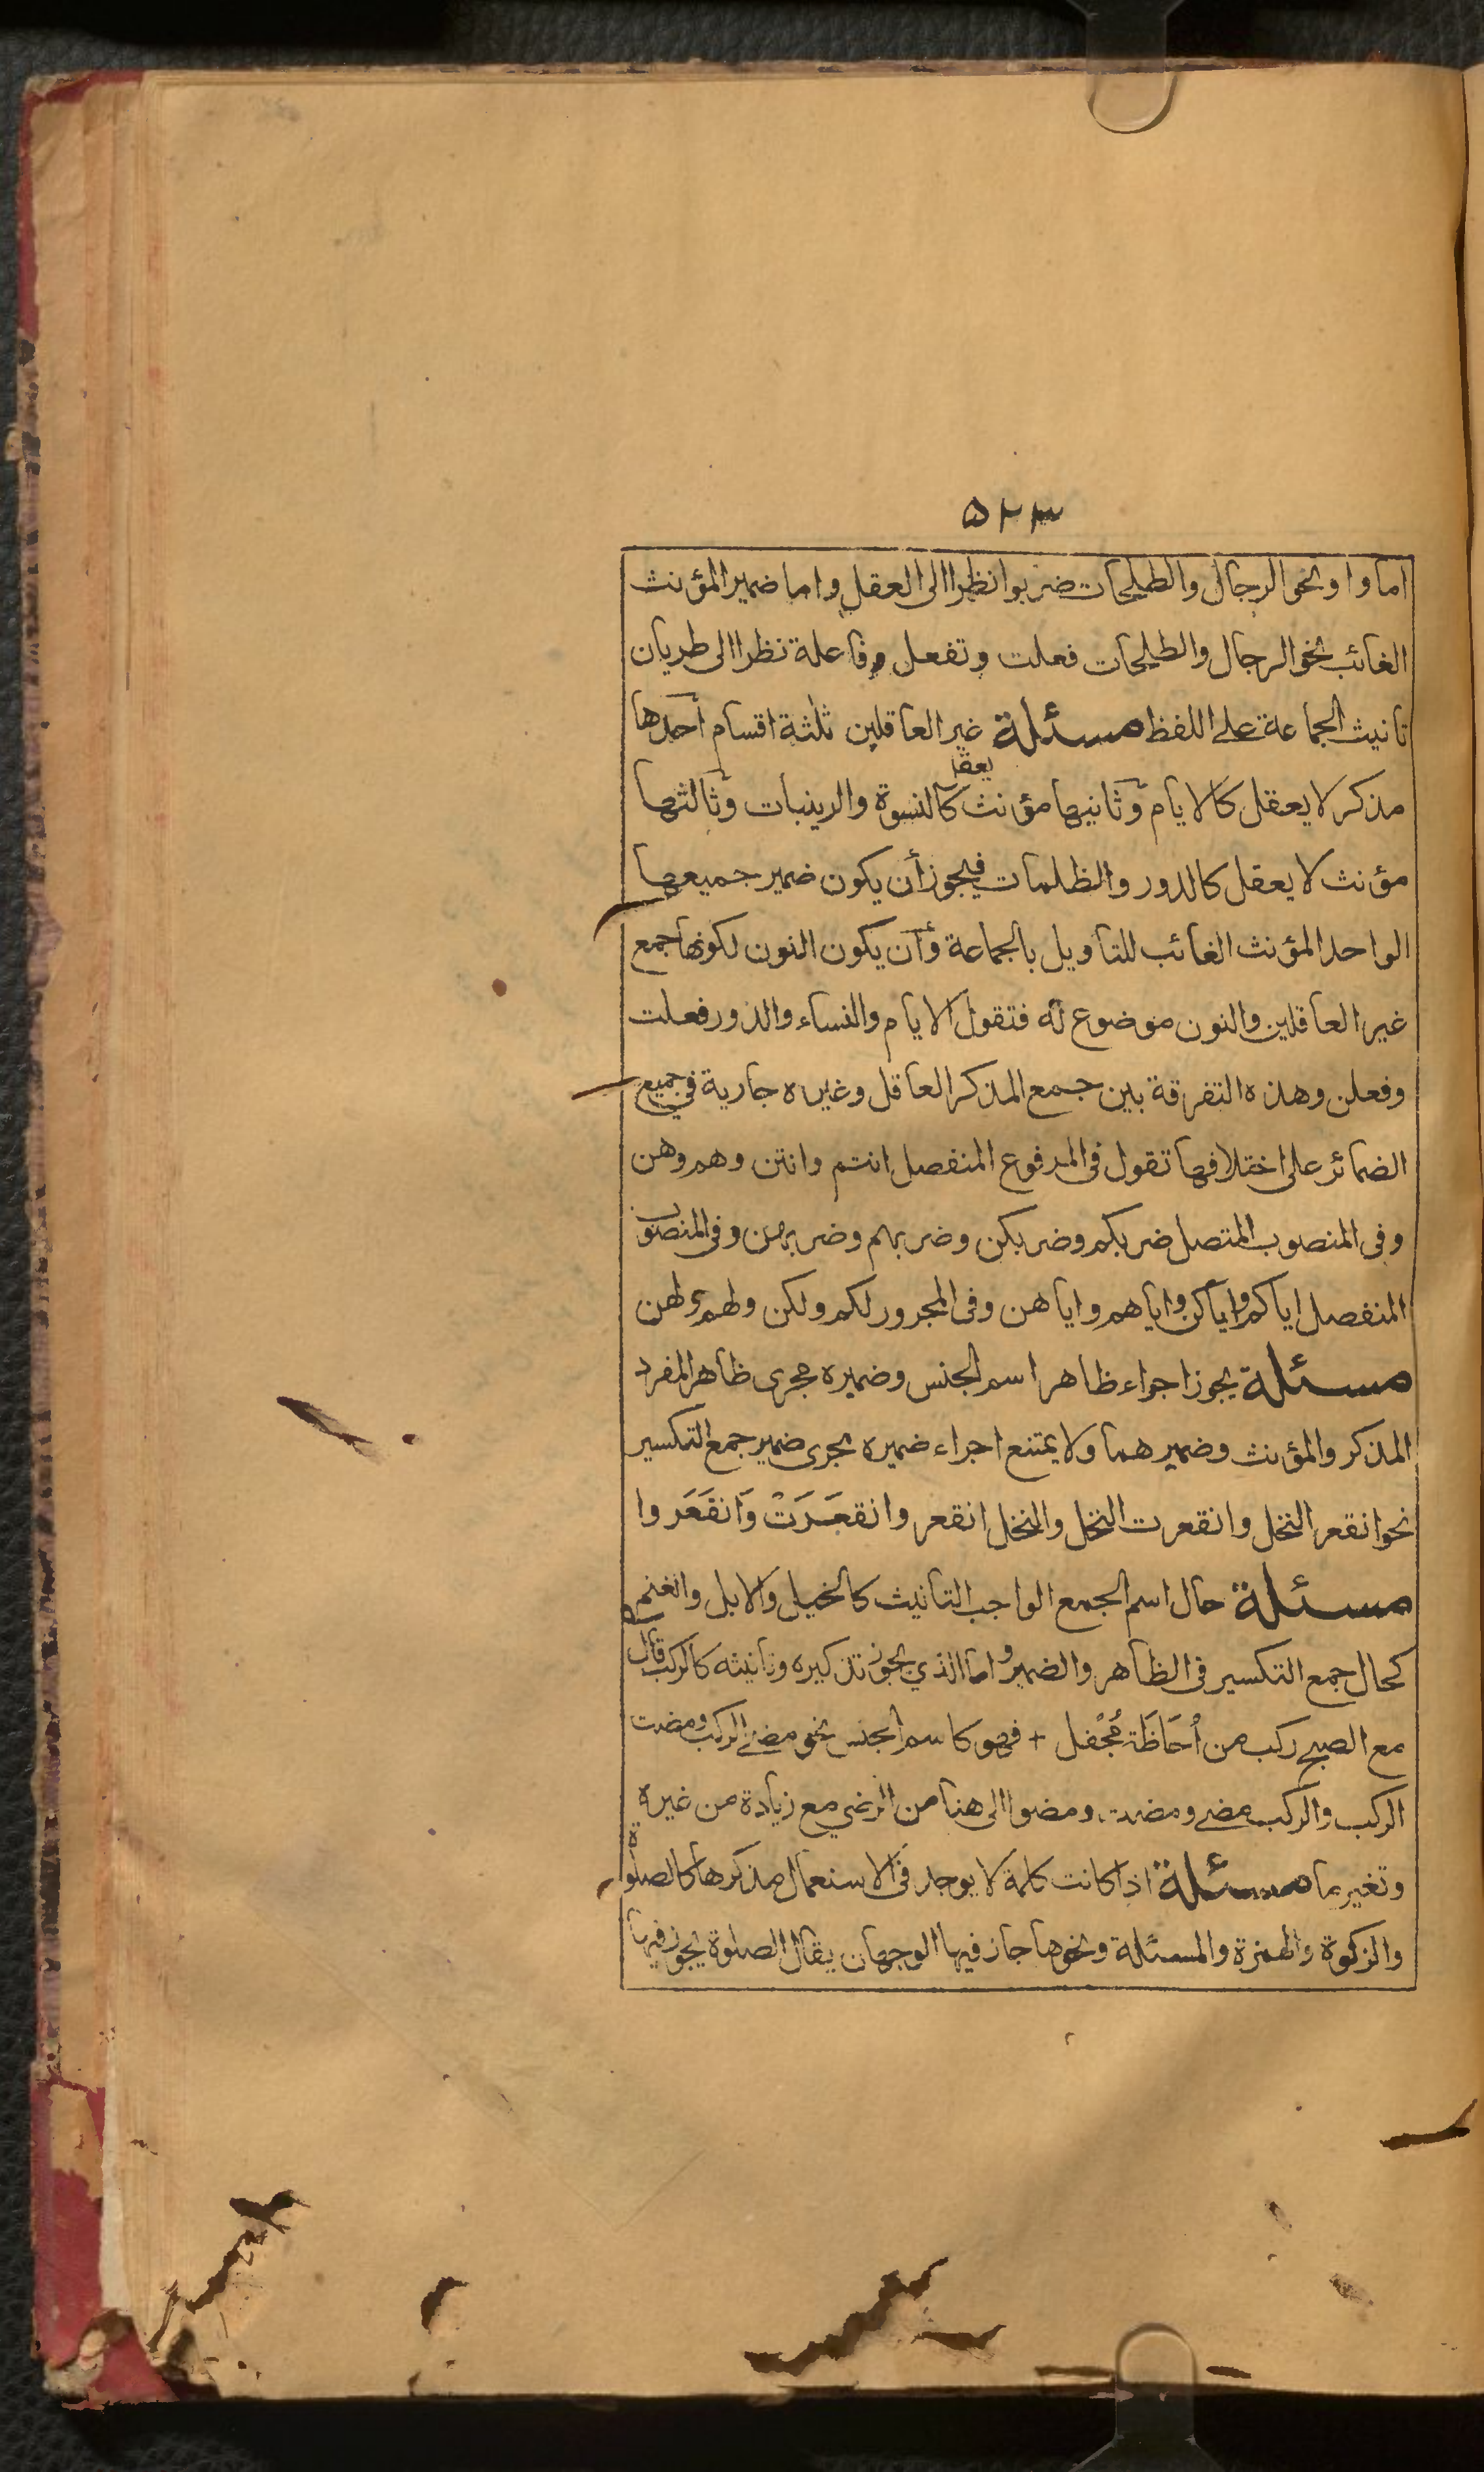 ۵۲۳
اما واو نحو الرجال والطلحات ضربوا نظرا الى العقل واما ضمير المؤنث
الغائب نحو الرجال والطلحات فعلت وتفعل وفاعلة نظرا الى طريان
تانيث الجماعة على اللفظ مسئلة غير العاقلين ثلثة اقسام احدها
مذكر لا يعقل كالايام وثانيها مؤنث يعقل كالنسوة والزينبات وثالثها
مؤنث لا يعقل كالدور والظلمات فيجوز أن يكون ضمير جميعها
الواحد المؤنث الغائب للتاويل بالجماعة وأن يكون النون لكونها جمع
غير العاقلين والنون موضوع له فتقول الايام والنساء والدور فعلت
وفعلن وهذه التفرقة بين جمع المذكر العاقل وغيره جارية في جميع
الضمائر على اختلافها تقول فى المرفوع المنفصل انتم وانتن وهم وهن
وفى المنصوب المتصل ضربكم وضربكن وضربهم وضربهن وفى المنصوب
المنفصل اياكم واياكن واياهم واياهن وفى المجرور لكم ولكن ولهم ولهن
مسئلة يجوز اجراء ظاهر اسم الجنس وضميره مجرى ظاهر المفرد
المذكر والمؤنث وضميرهما ولا يمتنع اجراء ضميره مجرى ضمير جمع التكسير
نحو انقعر النخل وانقعرت النخل والنخل انقعر وانقعَرَتْ وَانقَعَروا
مسئلة حال اسم الجمع الواجب التانيث كالخيل والابل والغنم
كحال جمع التكسير فى الظاهر والضمير واما الذي يجوز تذكيره وتانيثه كالركب قال
مع الصبح ركب من أُحَاظَة مُجْفل + فهو كاسم الجنس نحو مضى الركب ومضت
الركب والركب مضى ومضت ومضوا الى هنا من الرضي مع زيادة من غيره
وتغير ما مسئلة اذا كانت كلمة لا يوجد فى الاستعمال مذكرها كالصلوة
والزكوة والهمزة والمسئلة ونحوها جاز فيها الوجهان يقال الصلوة يجوز فيها